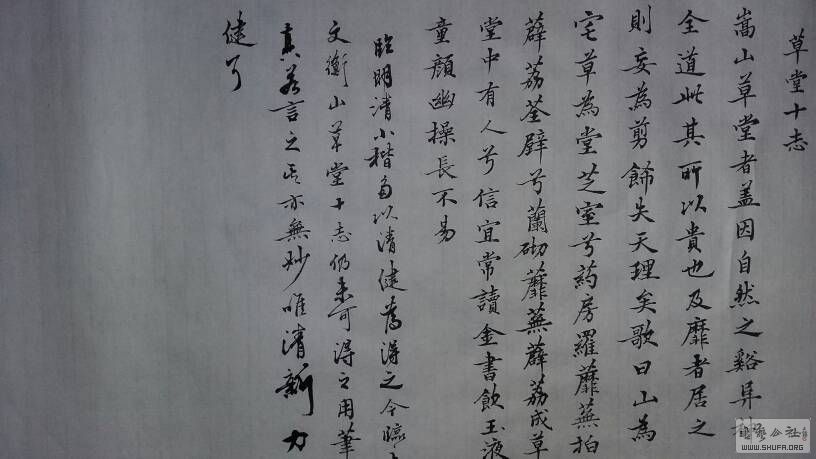 草堂十志
嵩山草堂者盖因自然之谿阜
全道此其所以貴也及靡者居之
則妄為剪餙失天理矣歌曰山為
宅草為堂芝室兮葯房羅蘼蕪拍
薜荔荃壁兮蘭砌蘼蕪薜荔成草
堂中有人兮信宜常讀金書飲玉液
童顏幽操長不易
臨明清小楷多以清健為得之今臨
文衡山草堂十志仍未可得之用筆
真若言之亦無妙唯清新力
健
WWW.SHUFA.ORG